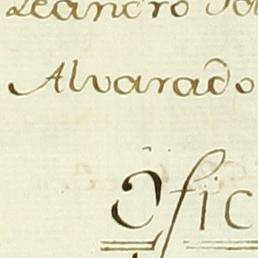 Leandro
Alvarado
Ofic